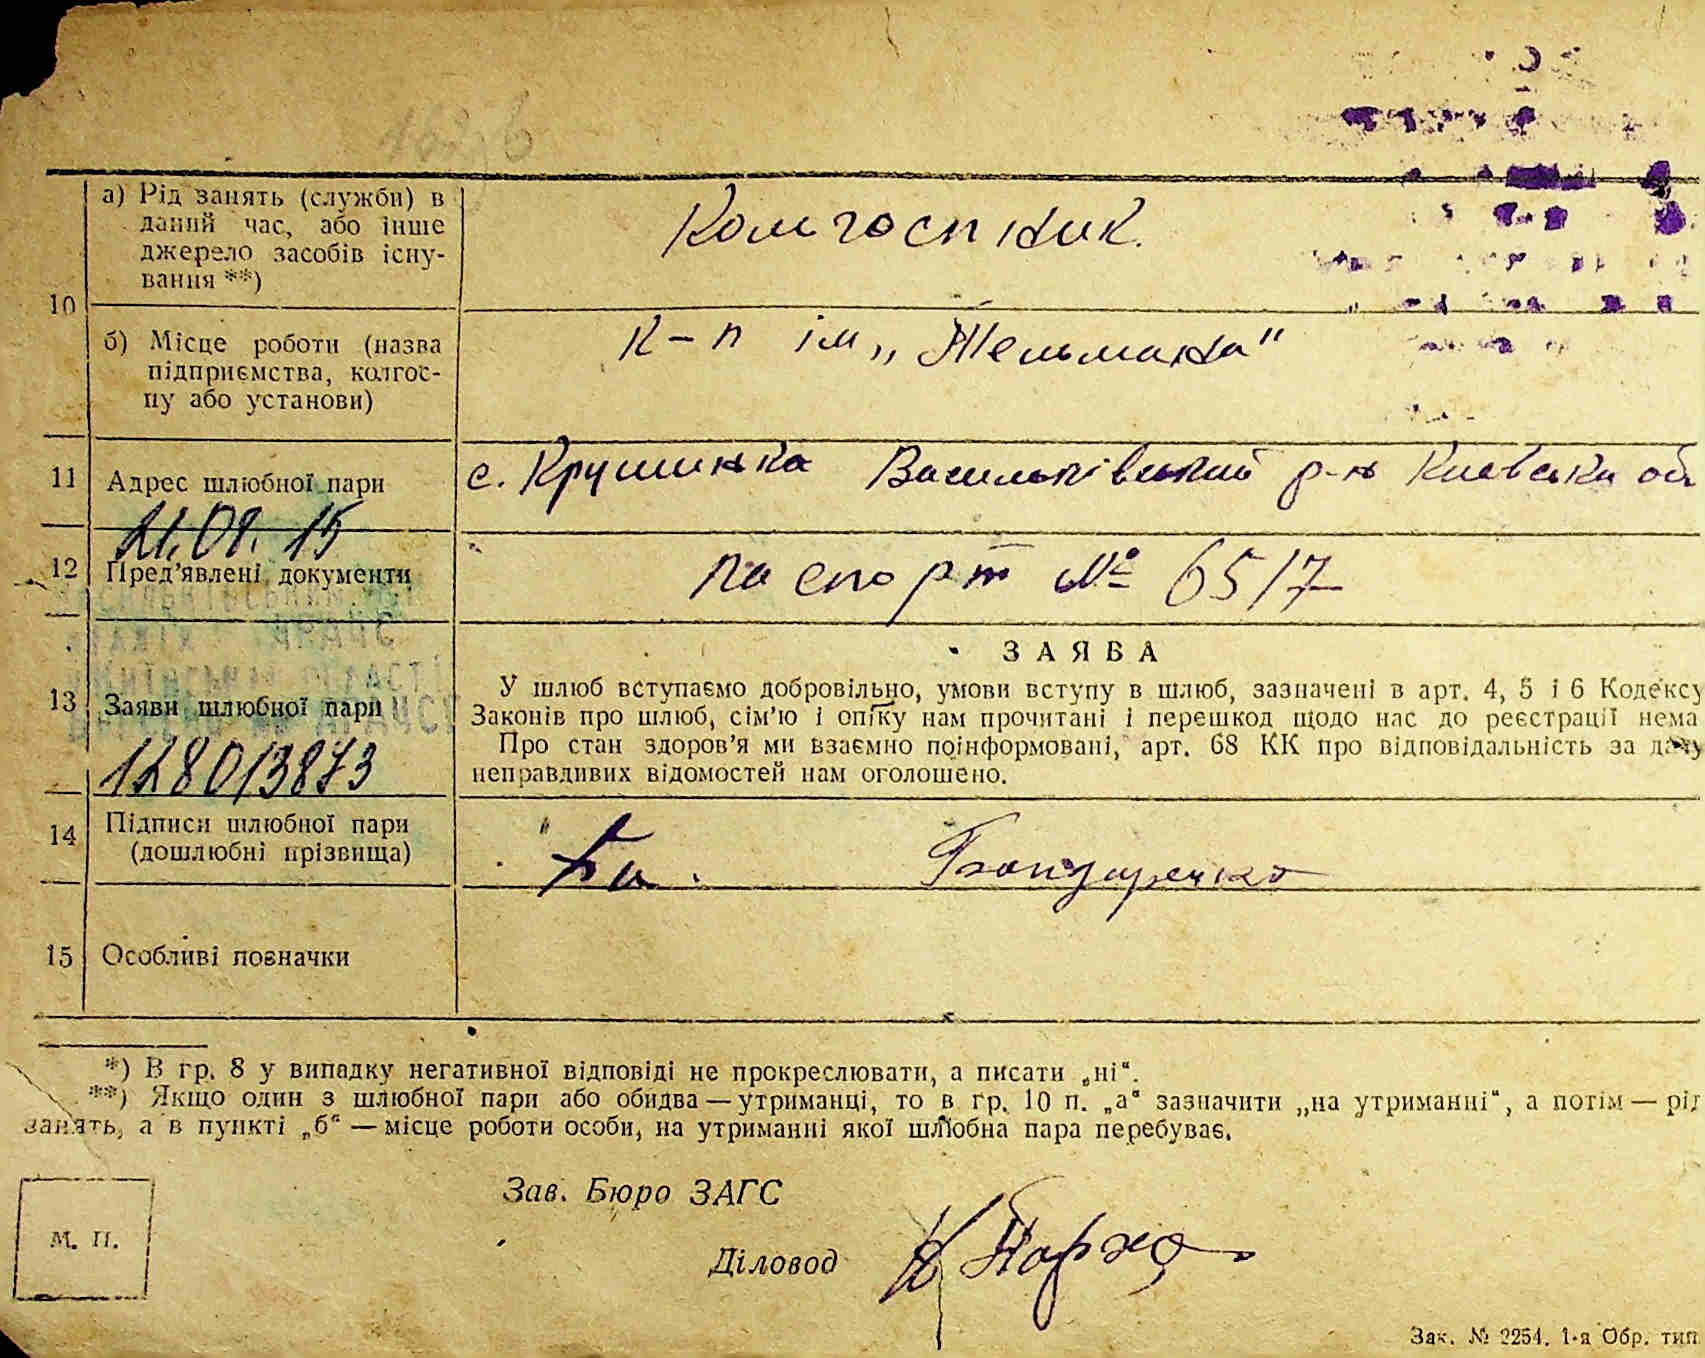 а) Рід занять (служби) в
даний час, або інше
джерело засобів існу-
вання **)
Колгоспник.
10
б) Місце роботи (назва
підприємства, колгос-
пу або установи)
К-п ім „Тельмана"
11
Адрес шлюбної пари
с. Крушинка Васильківський р-н Київська обл
21.08.15
12
Пред'явлені документи
паспорт № 6517
13
Заяви шлюбної пари
128013873
ЗАЯВА
У шлюб вступаємо добровільно, умови вступу в шлюб, зазначені в арт. 4, 5 і 6 Кодексу
Законів про шлюб, сім'ю і опіку нам прочитані і перешкод щодо нас до реєстрації нема
Про стан здоров'я ми взаємно поінформовані, арт. 68 КК про відповідальність за дачу
неправдивих відомостей нам оголошено.
14
Підписи шлюбної пари
(дошлюбні прізвища)
Бондаренко
15
Особливі позначки
*) В гр. 8 у випадку негативної відповіді не прокреслювати, а писати „ні“.
**) Якщо один з шлюбної пари або обидва — утриманці, то в гр. 10 п. „а“ зазначити „на утриманні“, а потім — рід
занять, а в пункті „б“ — місце роботи особи, на утриманні якої шлюбна пара перебуває.
Зав. Бюро ЗАГС
М. П.
Діловод
Зак. № 2254. 1-а Обр. тип.